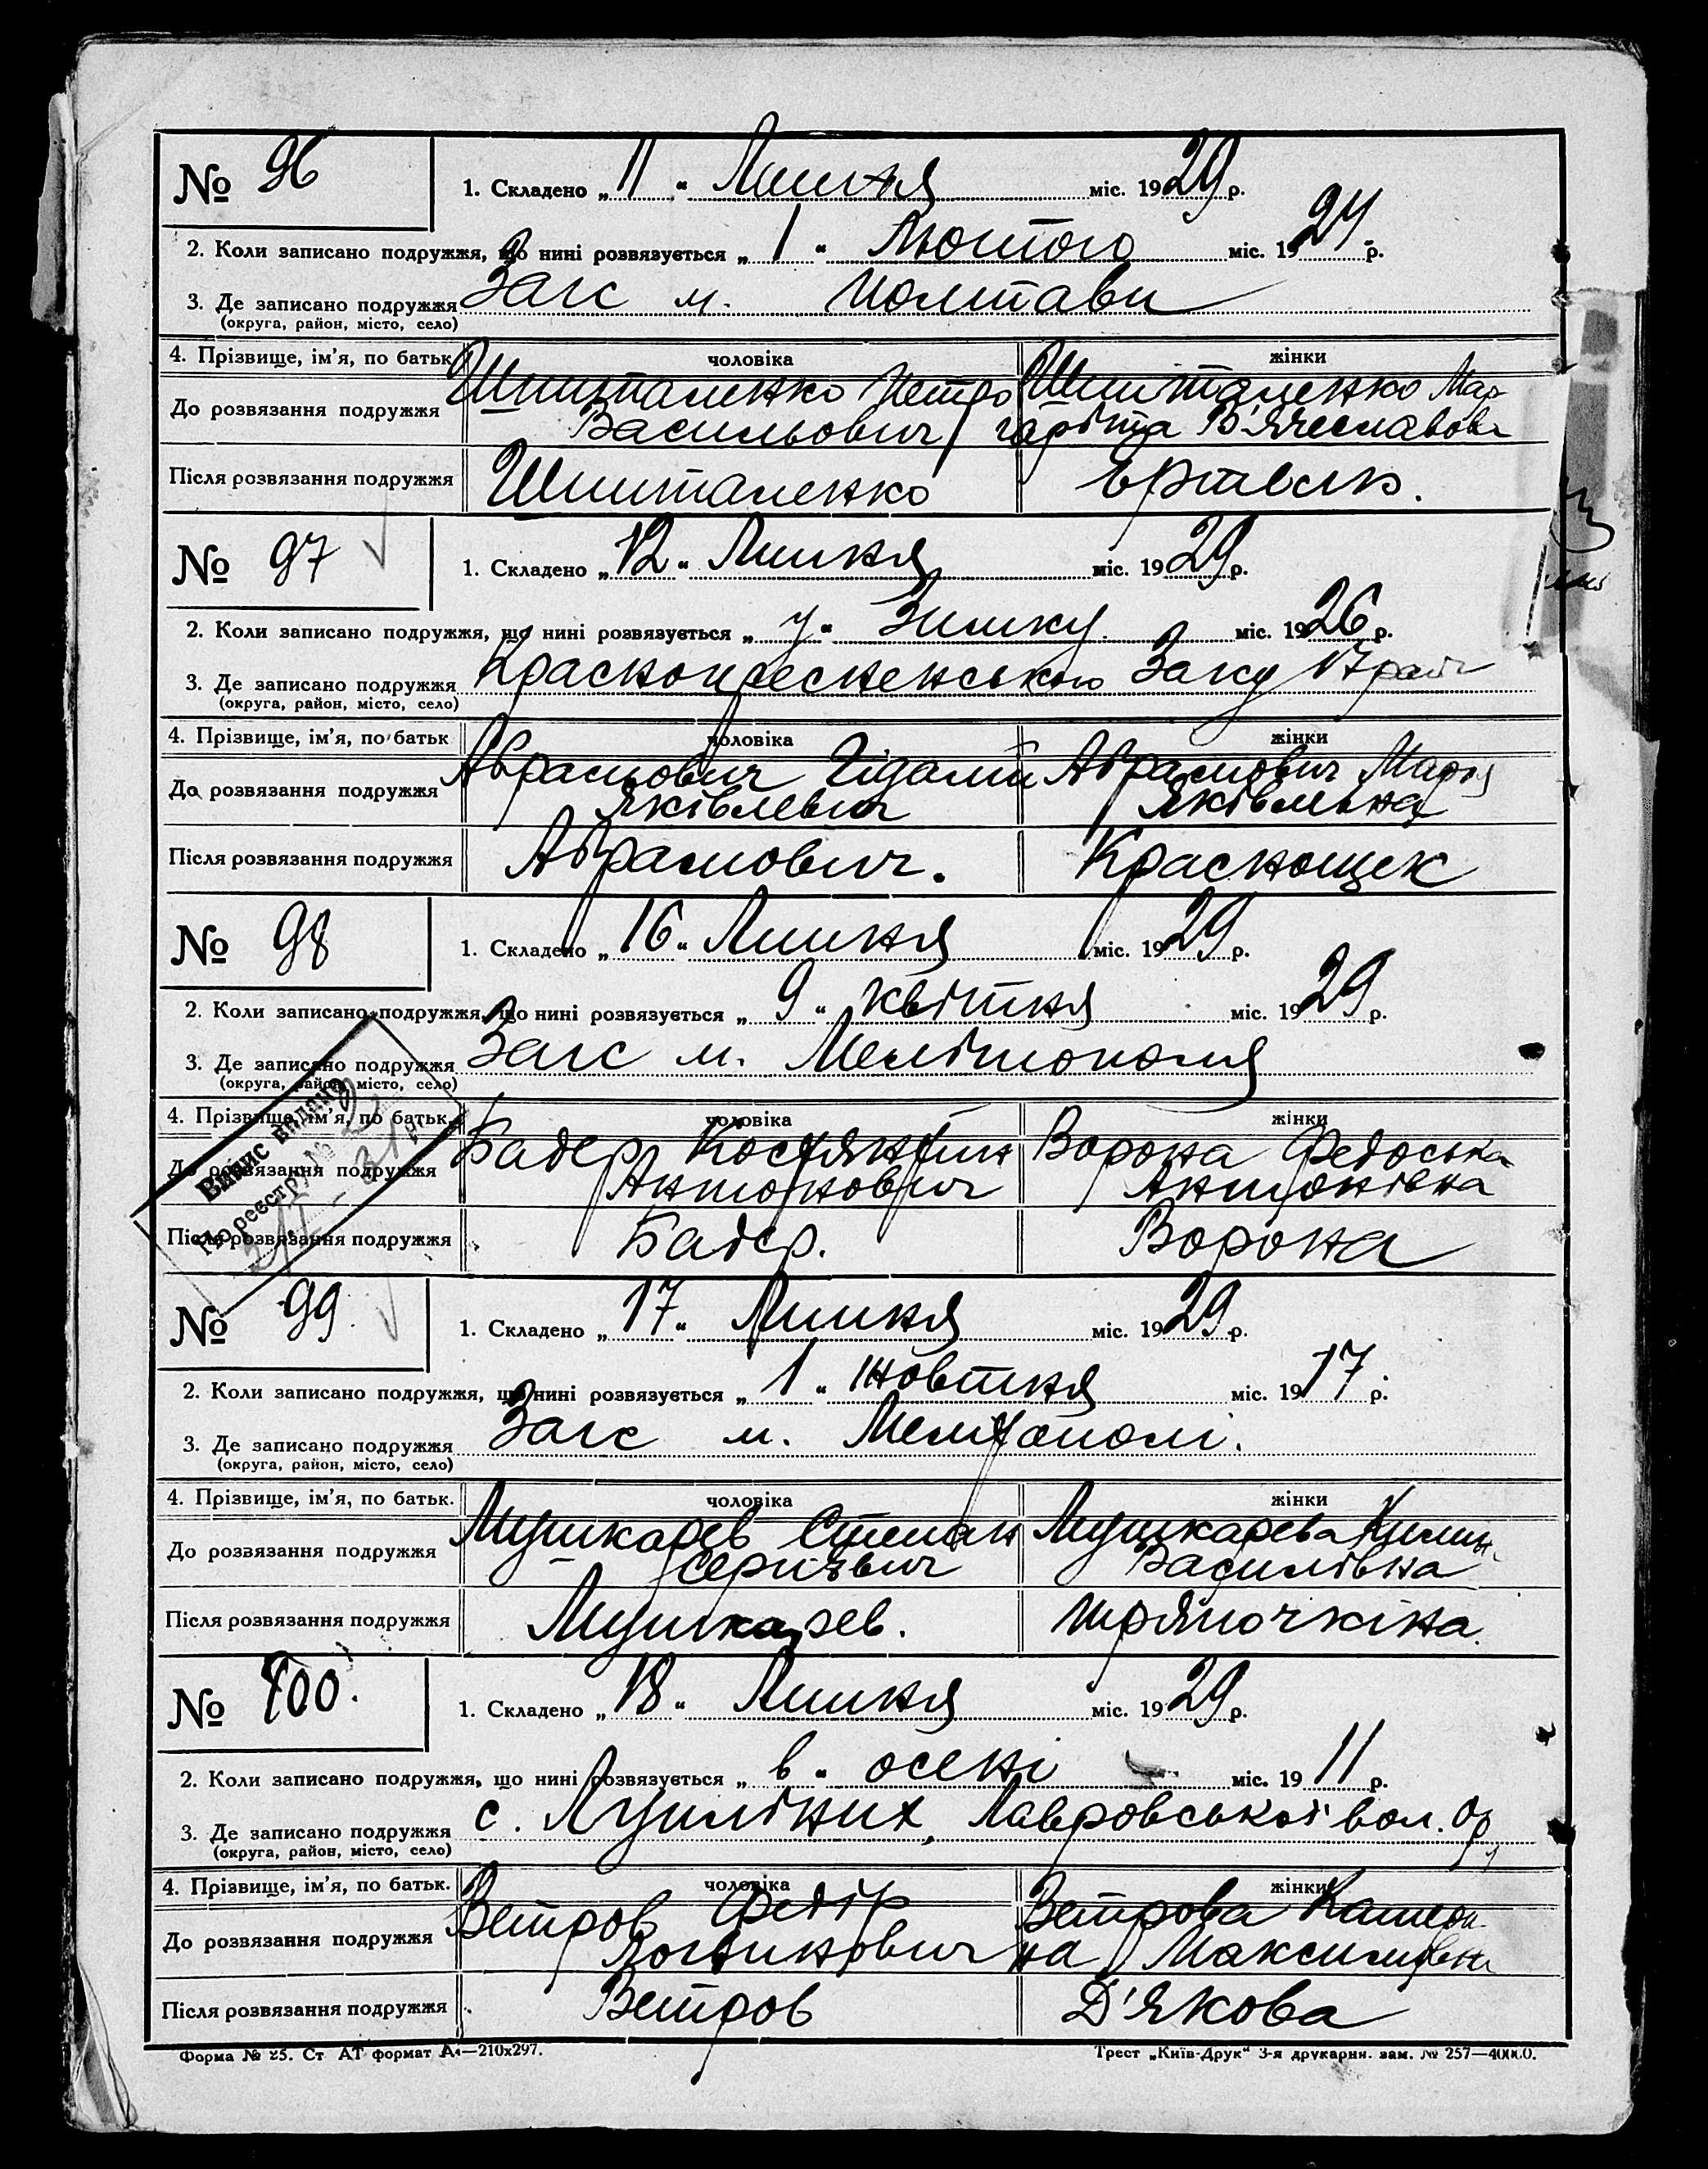 № 96
1. Складено „ 11 “ Липня міс. 1929 р.
2. Коли записано подружжя, що нині розвязується „ 1 “ Лютого міс. 1924 р.
3. Де записано подружжя Загс м. Полтави
(округа, район, місто, село)
4. Прізвище, ім’я, по батьк. чоловіка жінки
До розвязання подружжя Шишталенко Петро Шишталенко Мар
Васильович гаріта В'ячеславовн
Після розвязання подружжя Шишталенко
№ 97
1. Складено „ 12 “ Липня міс. 1929 р.
2. Коли записано подружжя, що нині розвязується „ у “ Зимку міс. 1926 р.
3. Де записано подружжя Краснопресненського Загсу
(округа, район, місто, село)
4. Прізвище, ім’я, по батьк чоловіка жінки
До розвязання подружжя Абрамович Абрамович Марія
Яківлевич Яківлівна
Після розвязання подружжя Абрамович. Краснощек
№ 98
1. Складено „ 16 “ Липня міс. 1929 р.
2. Коли записано подружжя, що нині розвязується „ 9 “ квітня міс. 1929 р.
3. Де записано подружжя Загс м. Мелітополя
(округа, район, місто, село)
Витис видано
По реєстру №
4. Прізвище, ім’я, по батьк. чоловіка жінки
До розвязання подружжя Бадер Костянтин Ворона Федоська
Антонович Антонівна
Після розвязання подружжя Бадер. Ворона
№ 99.
1. Складено „ 17 “ Липня міс. 1929 р.
2. Коли записано подружжя, що нині розвязується „ 1 “ жовтня міс. 1917 р.
3. Де записано подружжя Загс м. Мелітополі.
(округа, район, місто, село)
4. Прізвище, ім’я, по батьк. чоловіка жінки
До розвязання подружжя Мушкарев Степан Мушкарева
Василівна
Після розвязання подружжя Мушкарев. Пряпочкіна.
№ 100.
1. Складено „ 18 “ Липня міс. 1929 р.
2. Коли записано подружжя, що нині розвязується „ в “ осені міс. 1911 р.
3. Де записано подружжя с. Лавровської вол.
(округа, район, місто, село)
4. Прізвище, ім’я, по батьк. чоловіка жінки
До розвязання подружжя Ветров Федір Ветрова Катери
Логвинович на Максимівна
Після розвязання подружжя Ветров Д'якова
Форма № 25. Ст АТ формат А4—210х297. Трест „Київ-Друк“ 3-я друкарня. зам. № 257—40000.